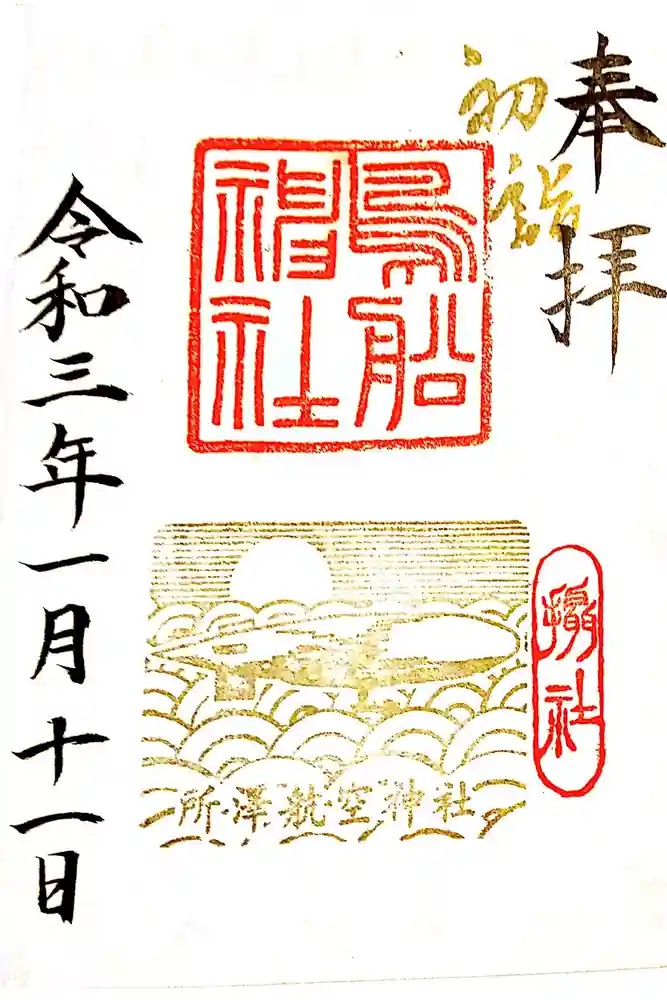 奉拝
初詣
鳥船
神社
摂社
所澤航空神社
令和三年一月十一日